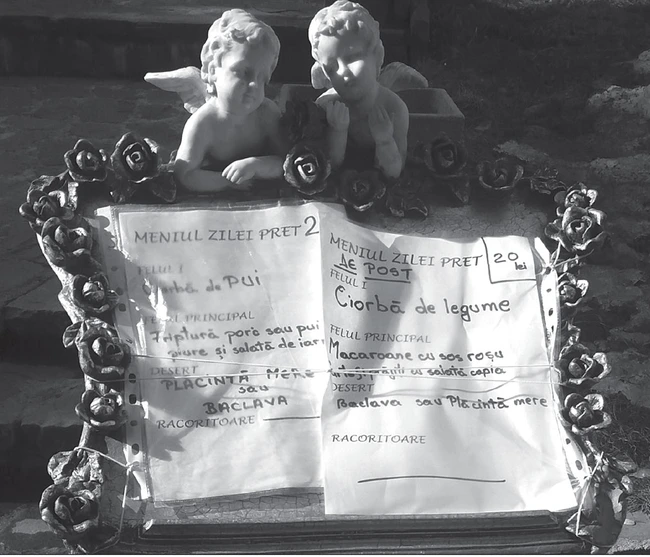 MENIUL ZILEI PRET 2
FELUL I
Ciorbă de PUI
FELUL PRINCIPAL
Friptură porc sau pui
piure și salată de
DESERT
PLACINTĂ MERE
sau
BACLAVA
RACORITOARE
MENIUL ZILEI PRET 20 lei
DE POST
FELUL I
Ciorbă de legume
FELUL PRINCIPAL
Macaroane cu sos roșu
cu salată capia
DESERT
Baclava sau Plăcintă mere
RACORITOARE